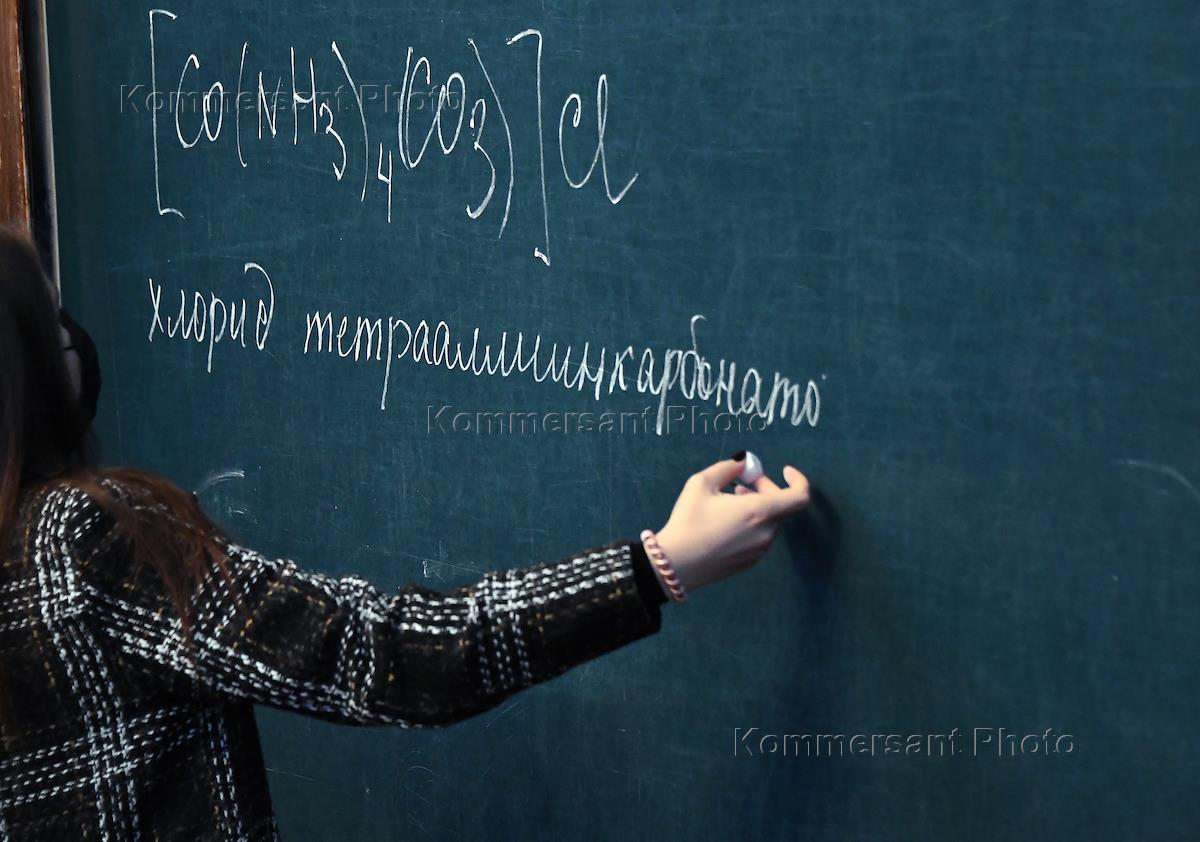 [Co(NH3)4(CO3)]Cl
Kommersant Photo
хлорид тетраамминкарбонато
Kommersant Photo
Kommersant Photo